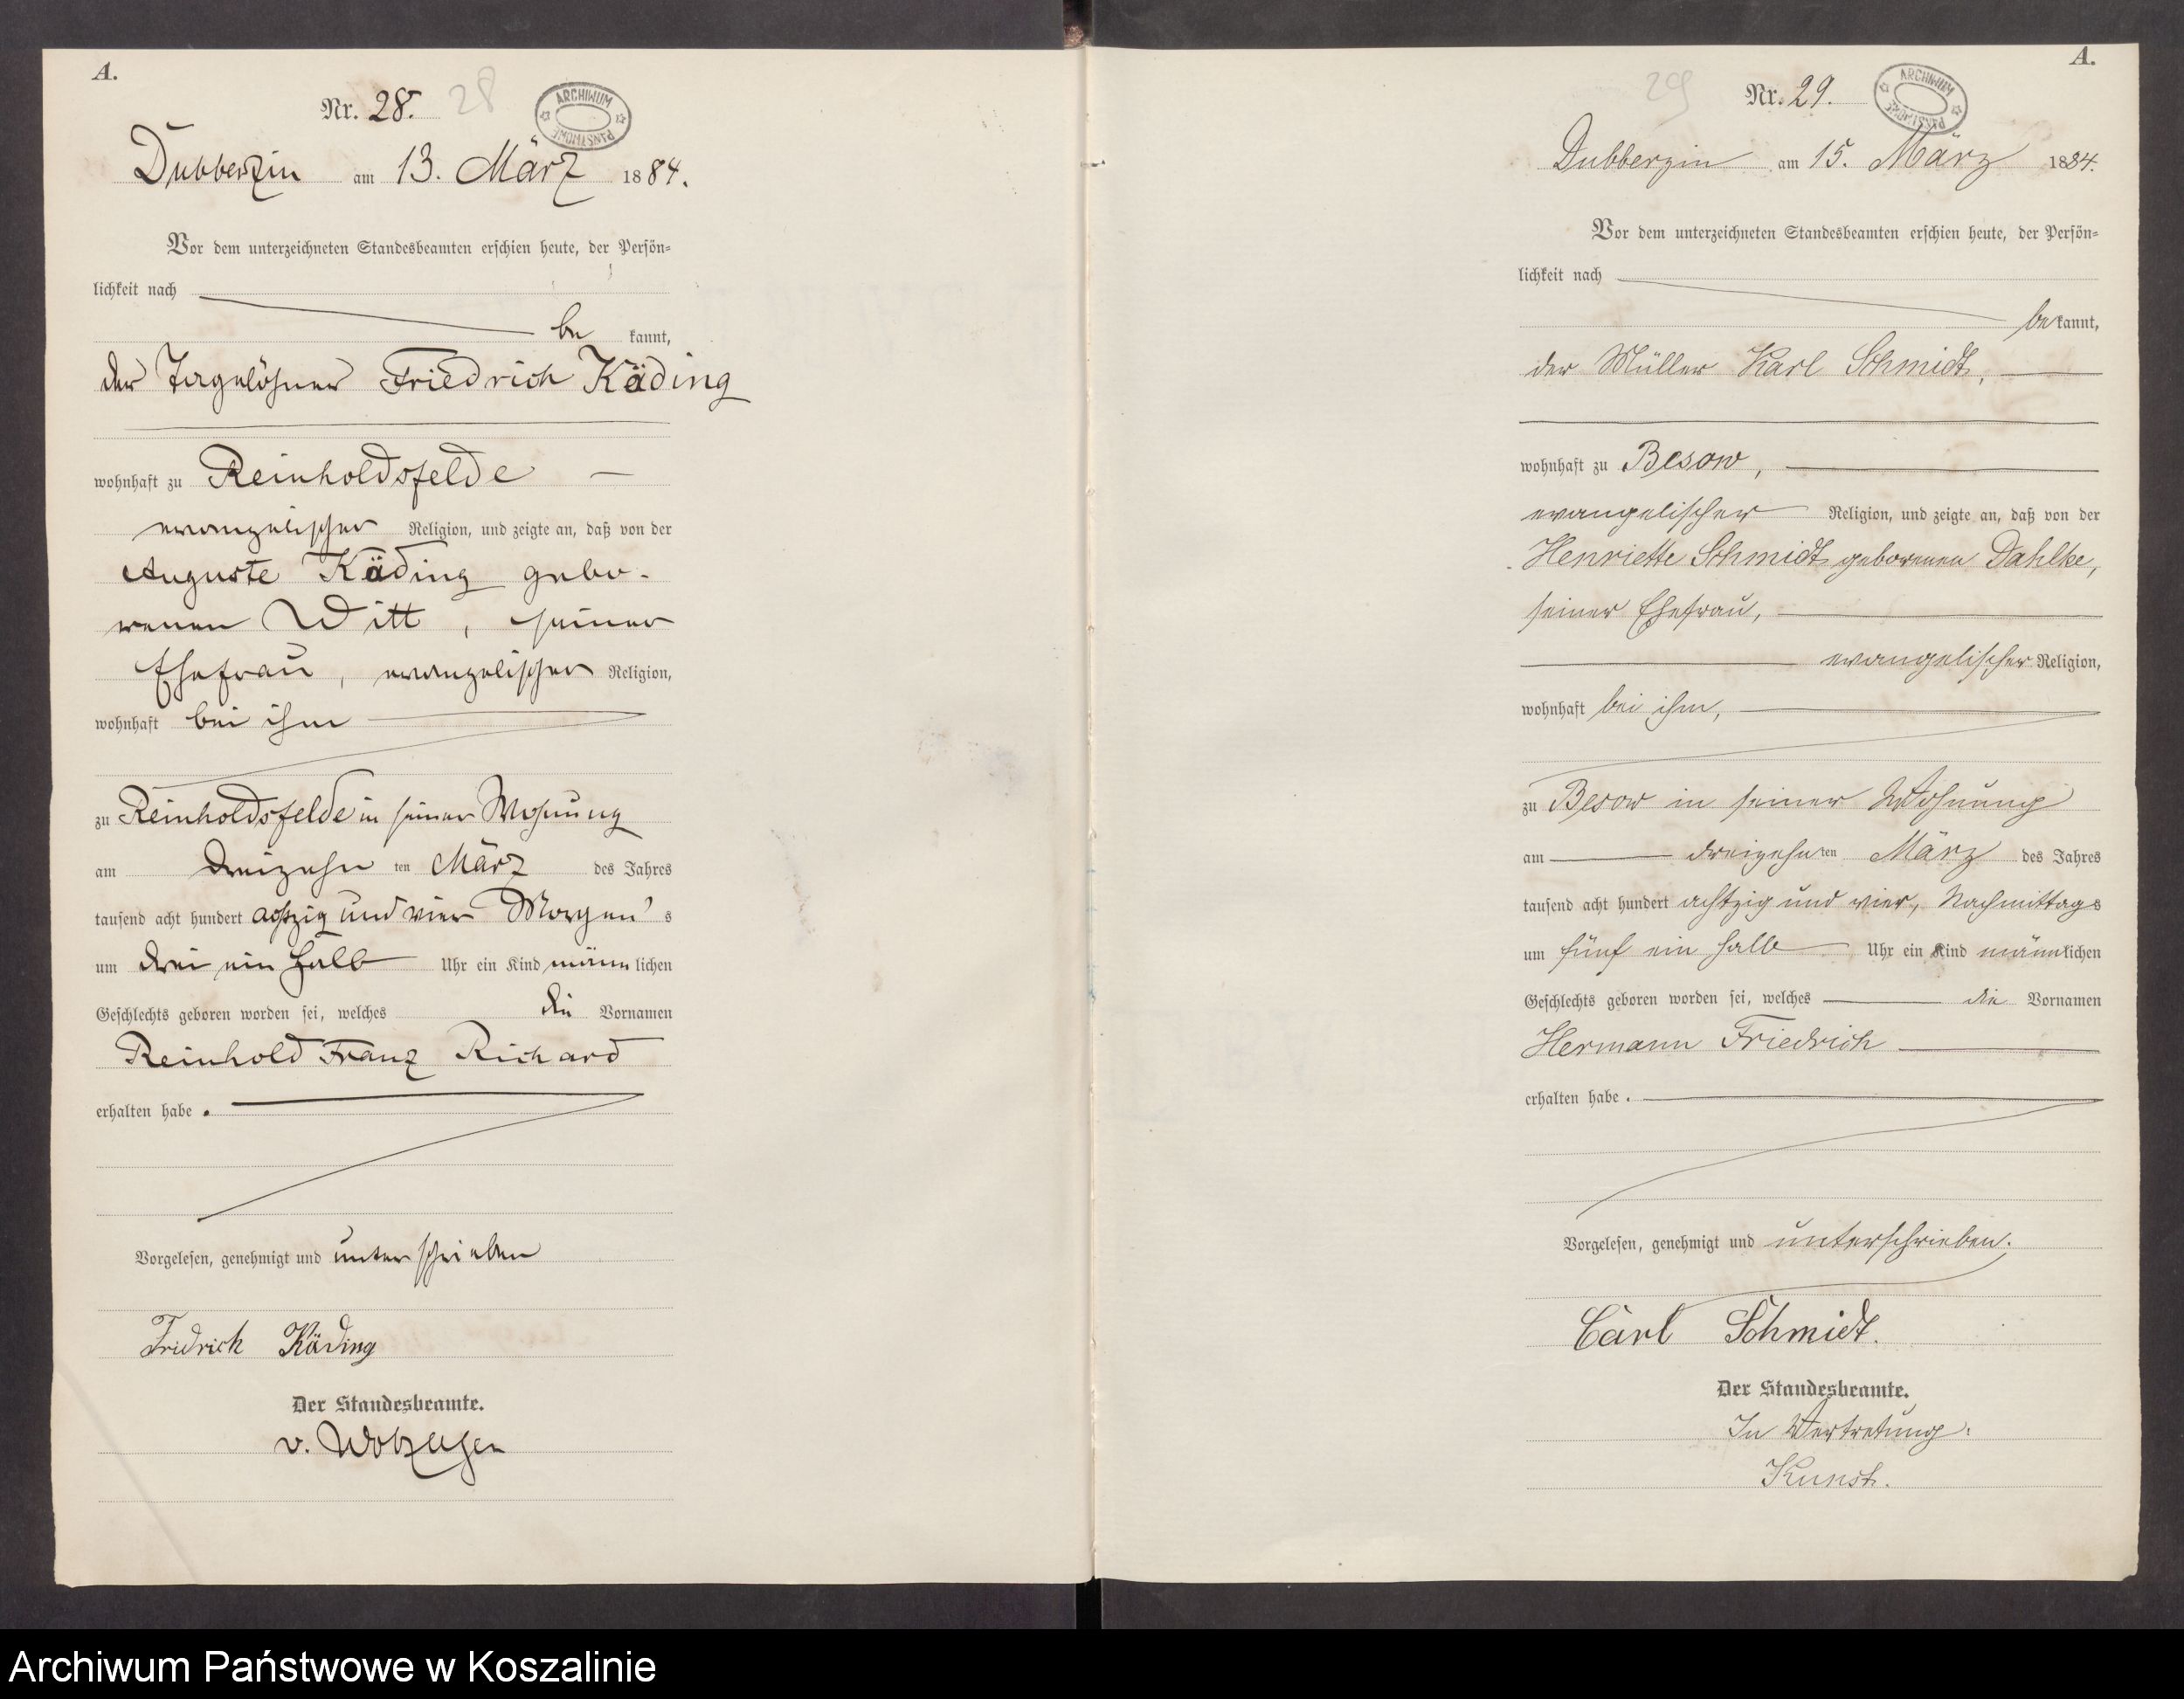 A.
Nr. 28. 28
ARCHIWUM PAŃSTWOWE
Dubberzin am 13. März 1884.
Vor dem unterzeichneten Standesbeamten erschien heute, der Persön=
lichkeit nach
be kannt,
der Tagelöhner Friedrich Käding
wohnhaft zu Reinholdsfelde
evangelischer Religion, und zeigte an, daß von der
Auguste Käding gebo-
renen Witt, seiner
Ehefrau, evangelischer Religion,
wohnhaft bei ihm
zu Reinholdsfelde in seiner Wohnung
am dreizehn ten März des Jahres
tausend acht hundert achtzig und vier Morgen's
um drei ein halb Uhr ein Kind männ lichen
Geschlechts geboren worden sei, welches die Vornamen
Reinhold Franz Richard
erhalten habe.
Vorgelesen, genehmigt und unterschrieben
Fridrich Käding
Der Standesbeamte.
v.
A.
29 Nr. 29.
ARCHIWUM PAŃSTWOWE
Dubberzin am 15. März 1884.
Vor dem unterzeichneten Standesbeamten erschien heute, der Persön=
lichkeit nach
bekannt,
der Müller Karl Schmidt,
wohnhaft zu Besow,
evangelischer Religion, und zeigte an, daß von der
Henriette Schmidt geborenen Dahlke,
seiner Ehefrau,
evangelischer Religion,
wohnhaft bei ihm,
zu Besow in seiner Wohnung
am dreizehnten März des Jahres
tausend acht hundert achtzig und vier, Nachmittags
um fünf ein halb Uhr ein Kind männlichen
Geschlechts geboren worden sei, welches die Vornamen
Hermann Friedrich
erhalten habe.
Vorgelesen, genehmigt und unterschrieben.
Carl Schmidt.
Der Standesbeamte.
In Vertretung:
Kunst.
Archiwum Państwowe w Koszalinie